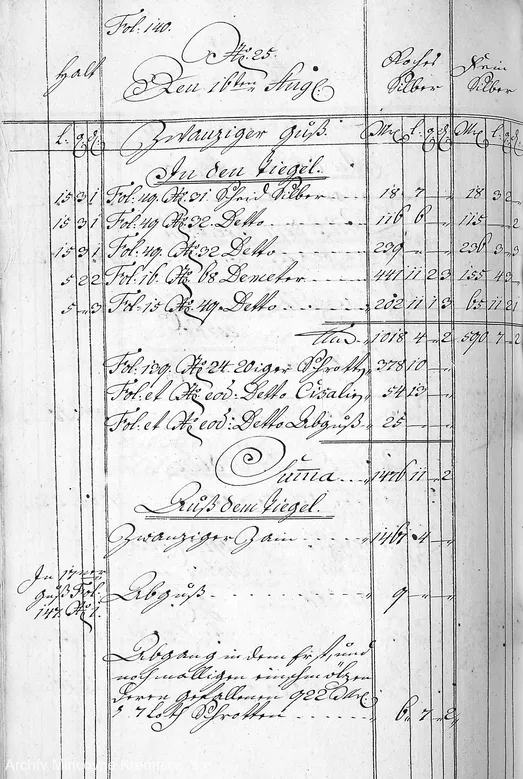 Fol: 140.
No: 25
Halt
Den 16ten Aug
Roches Silber
Fein Silber
l. q. d. Zwanziger Guß. Mr l. q. d. Mr l. q. d.
In den Tiegel.
15 3 1 Fol: 49. No: 31 Scheid Silber 18 7 - „ 18 3 2 -
15 3 1 Fol: 49 No: 32. Detto 116 6 - „ 115 - - 2
15 3 1 Fol: 49. No: 32 Detto 239 - - „ 236 3 - 3
5 2 2 Fol: 16. No: 68 Demeter 441 11 2 3 155 4 3 -
5 - 3 Fol: 15 No: 49. Detto 202 11 1 3 65 11 2 1
1018 4 - 2 590 7 - 2
Fol: 139. No: 24. 20iger Schrott 378 10 - „
Fol: et No: eod: Detto Cisalie 54 13 - „
Fol: et No: eod: Detto Abguß 25 - - „
Summa 1476 11 - 2
Auß dem Tiegel.
Zwanziger Zain 1461 4 - „
In 17ner Guß Fol: 147. No: 1.
Abguß 9 - - „
Abgang in dem Erst, und
nochmalligen einschmölzen
deren gefallenen 922 Mr
7 loth Schrotten 6 7 - 2